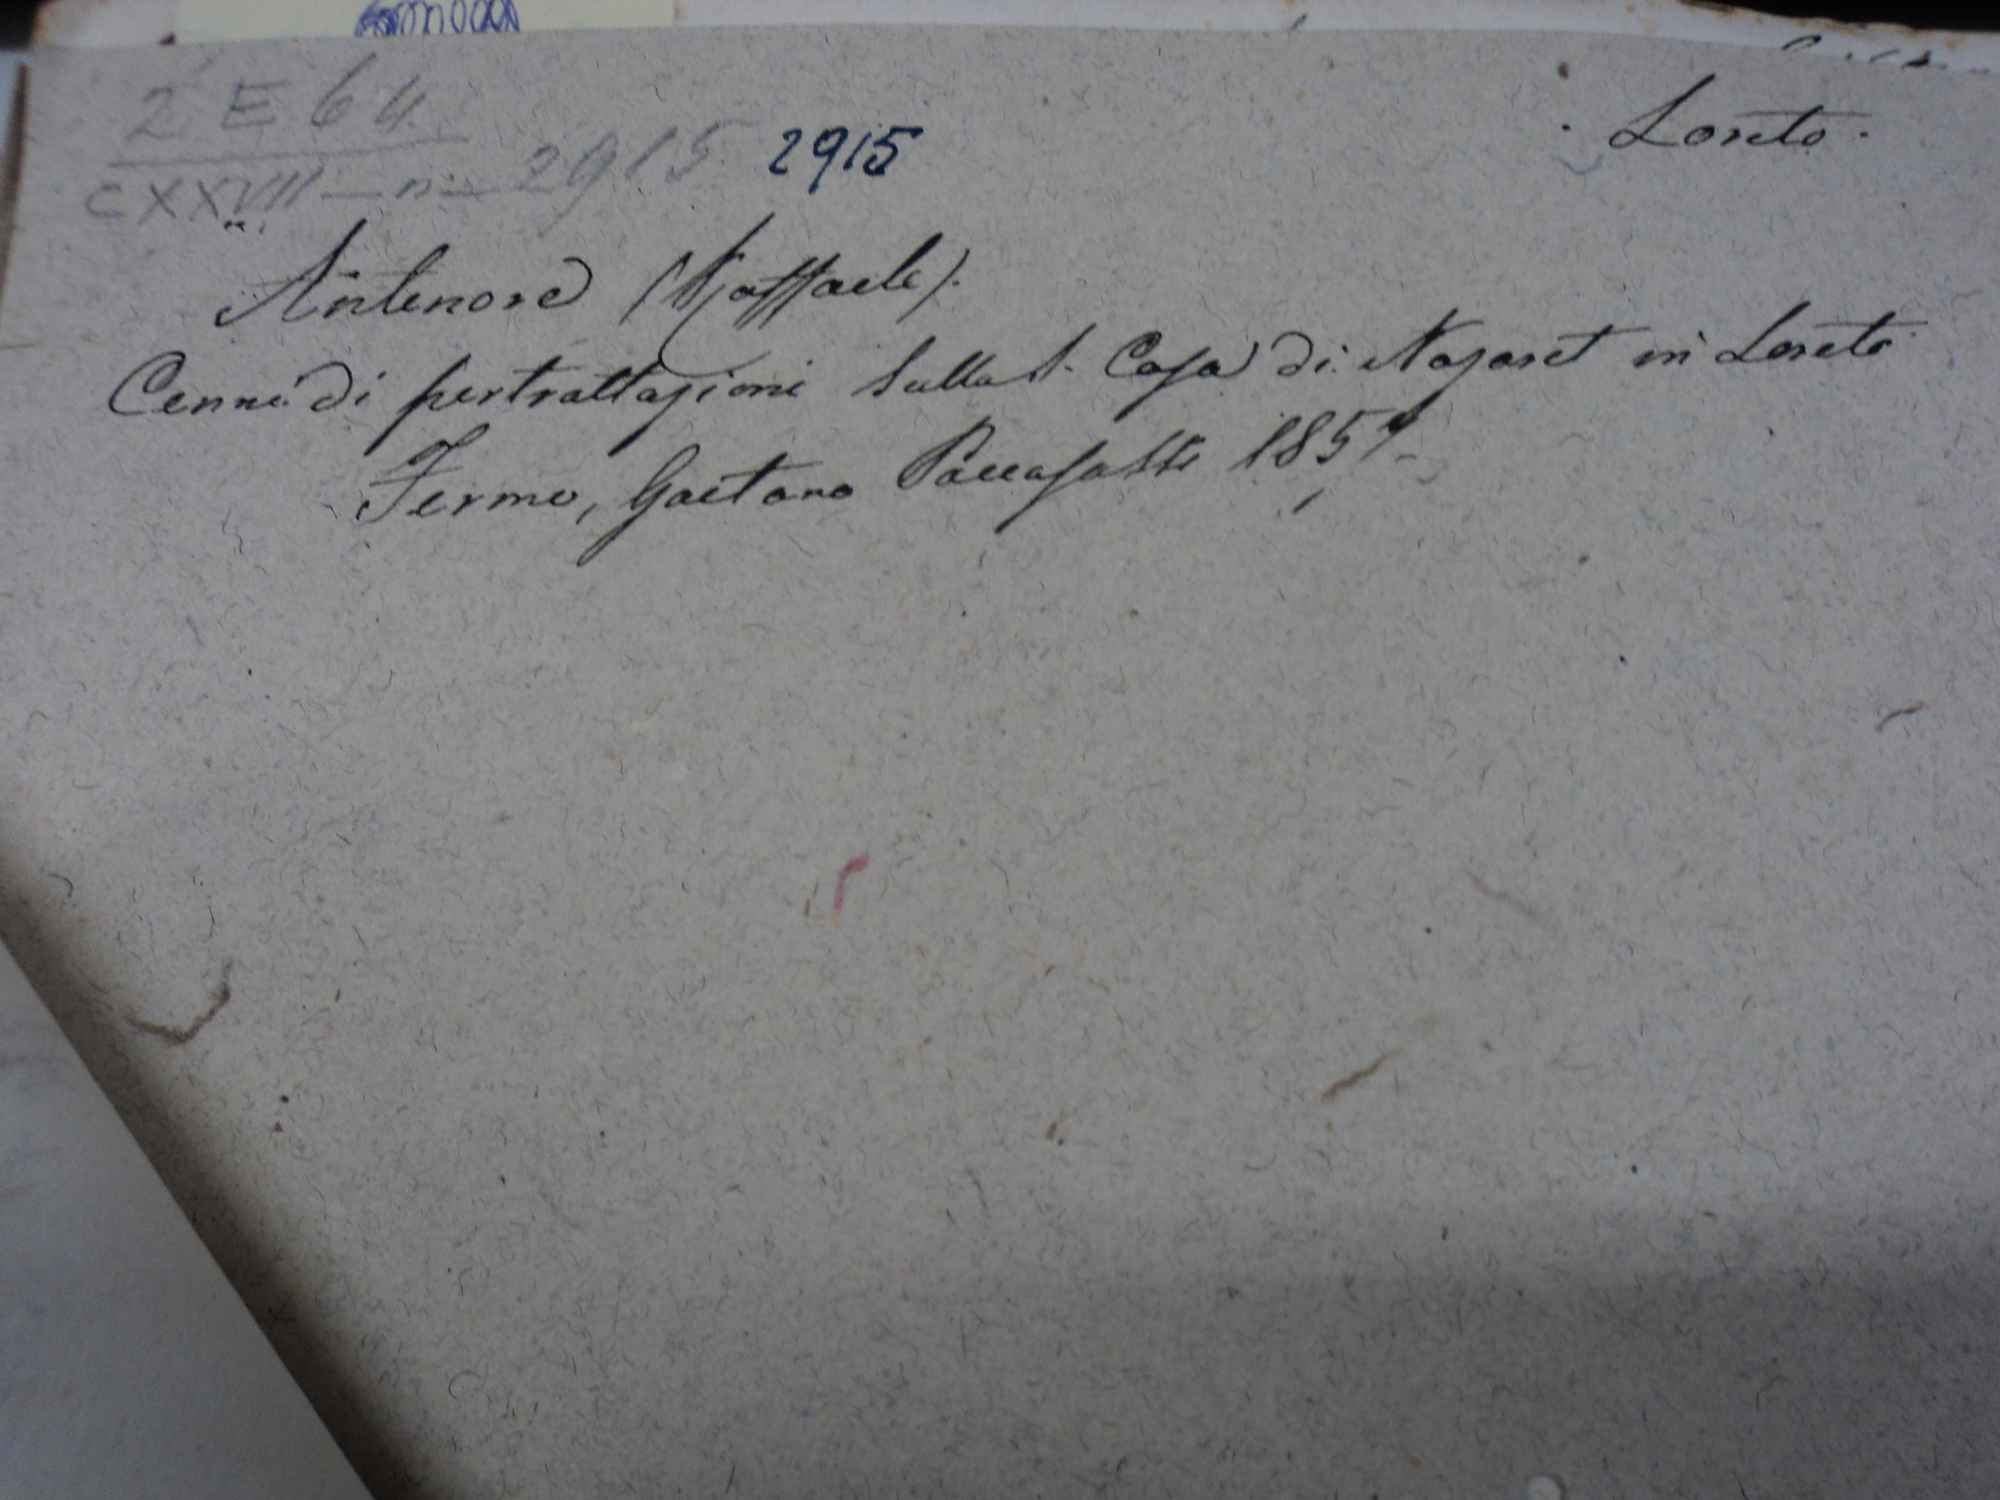 2 E 64 Loreto.
CXXVIII — n. 2915 2915
Antenore (Raffaele).
Cenni di pertrattazioni sulla S. Casa di Nazaret in Loreto
Fermo, Gaetano Paccasassi 1857